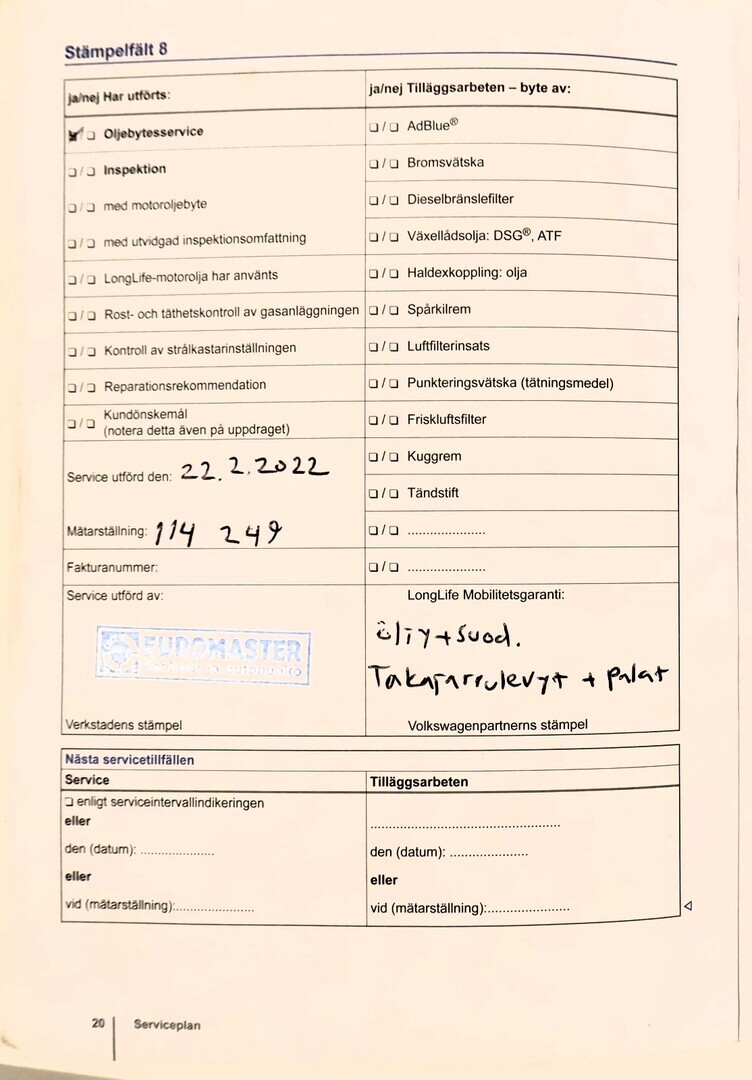 Stämpelfält 8
ja/nej Har utförts:
❏ Oljebytesservice
❏ / ❏ Inspektion
❏ / ❏ med motoroljebyte
❏ / ❏ med utvidgad inspektionsomfattning
❏ / ❏ LongLife-motorolja har använts
❏ / ❏ Rost- och täthetskontroll av gasanläggningen
❏ / ❏ Kontroll av strålkastarinställningen
❏ / ❏ Reparationsrekommendation
❏ / ❏ Kundönskemål
(notera detta även på uppdraget)
Service utförd den: 22.2.2022
Mätarställning: 114 249
Fakturanummer:
Service utförd av:
EUROMASTER
Verkstadens stämpel
ja/nej Tilläggsarbeten – byte av:
❏ / ❏ AdBlue®
❏ / ❏ Bromsvätska
❏ / ❏ Dieselbränslefilter
❏ / ❏ Växellådsolja: DSG®, ATF
❏ / ❏ Haldexkoppling: olja
❏ / ❏ Spårkilrem
❏ / ❏ Luftfilterinsats
❏ / ❏ Punkteringsvätska (tätningsmedel)
❏ / ❏ Friskluftsfilter
❏ / ❏ Kuggrem
❏ / ❏ Tändstift
❏ / ❏ ......................
❏ / ❏ ......................
LongLife Mobilitetsgaranti:
öljy+suod.
Takajarrulevyt + palat
Volkswagenpartnerns stämpel
Nästa servicetillfällen
Service
❏ enligt serviceintervallindikeringen
eller
den (datum): .....................
eller
vid (mätarställning):......................
Tilläggsarbeten
......................................................
den (datum): ......................
eller
vid (mätarställning):.......................
20
Serviceplan